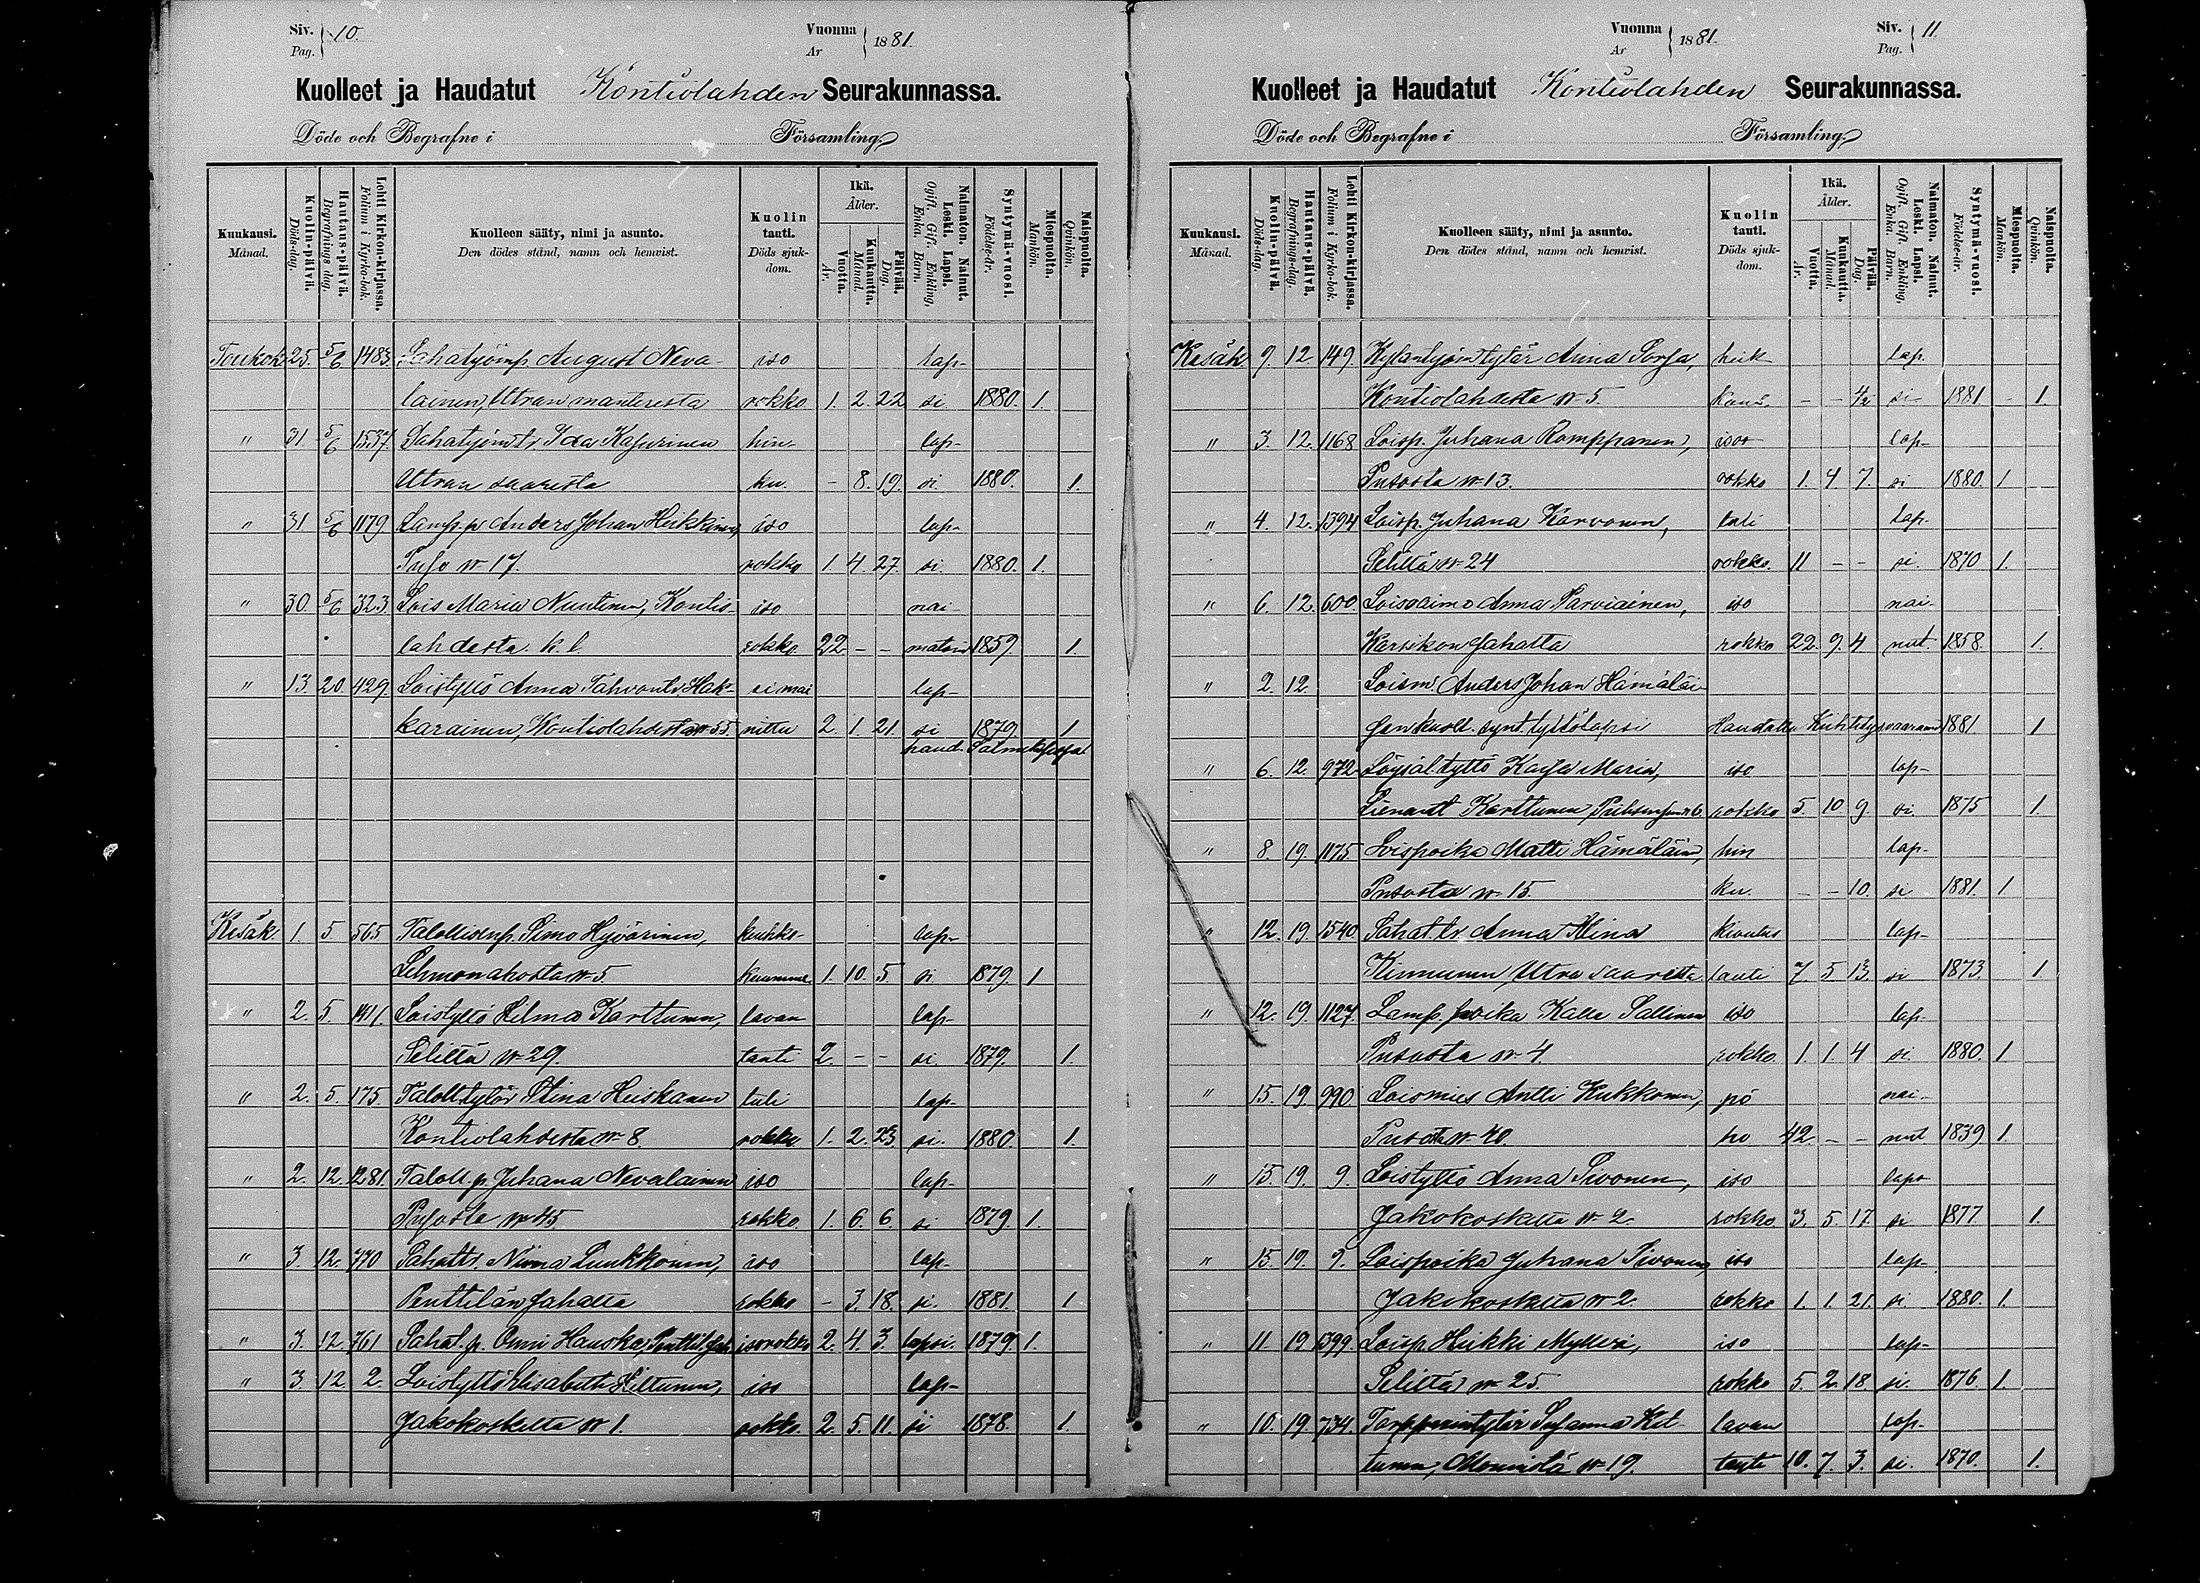 Siv. Pag. 10. Vuonna År 1881.
Kuolleet ja Haudatut Kontiolahden Seurakunnassa.
Döde och Begrafne i Församling.
Kuukausi. Månad. Kuolin-päivä. Döds-dag. Hautaus-päivä. Begrafnings dag. Lehti Kirkon-kirjassa. Folium i Kyrko-bok. Kuolleen sääty, nimi ja asunto. Den dödes stånd, namn och hemvist. Kuolin tauti. Döds sjuk-dom. Ikä. Ålder. Vuotta. År. Kuukautta. Månad. Päivää. Dag. Naimaton. Nainut. Leski. Lapsi. Ogift. Gift. Enkling, Enka. Barn. Syntymä-vuosi. Födelse-år. Miespuolta. Mankön. Naispuolta. Qvinkön.
Toukok 25. 5/6 1483. Sahatyömp. August Neva- iso lap-
lainen, Utran manteresta rokko 1. 2. 22 si 1880. 1.
" 31 5/6 1537. Sahatyöm tr. Ida Kajurinen hin- lap-
Utran saaresta ku. - 8. 19. si. 1880. 1.
" 31 5/6 1179. Lamp. p. Anders Johan Heikkinen, iso lap-
Puso № 17. rokko 1. 4. 27. si. 1880. 1.
" 30. 5/6 323. Lois Maria Nuutinen, Kontio- iso nai-
lahdesta k. l. rokko 22 - - maton 1859. 1.
" 13. 20. 429. Loistyttö Anna Tahvont. Hak- ei mai lap-
karainen, Kontiolahdesta № 55. nittu 2. 1. 21. si 1879. 1
haud.
Kesäk. 1. 5 565 Talollisenp. Simo Hyvärinen, kuhko- lap-
Lehmonahosta № 5. kuumme. 1. 10. 5. si 1879. 1
" 2. 5. 1411. Loistyttö Helma Karttunen, lavan lap-
Selittä № 29. tauti 2. - - si. 1879. 1.
" 2. 5. 175. Taloll. tytär Stina Heiskanen tuli lap-
Kontiolahdesta № 8. rokko 1. 2. 23. si. 1880. 1.
" 2. 12. 1281. Taloll. p. Juhana Nevalainen iso lap-
Pusosta № 45 rokko. 1. 6. 6. si 1879. 1.
" 3. 12. 770 Sahattr. Niina Luukkonen, iso lap-
Penttilän Sahalta rokko - 3. 18. si. 1881. 1
" 3. 12. 761 Sahat. p. Onni Hauska, isorokko 2. 4. 3. lapsi. 1879. 1.
" 3. 12. 2. Loistyttö Elisabeth Hiltunen, iso lap-
Jakokoskelta № 1. rokko. 2. 5. 11. si 1878. 1.
Vuonna År 1881. Siv. Pag. 11.
Kuolleet ja Haudatut Kontiolahden Seurakunnassa.
Döde och Begrafne i Församling.
Kuukausi. Månad. Kuolin-päivä. Döds-dag. Hautaus-päivä. Begrafnings-dag. Lehti Kirkon-kirjassa. Folium i Kyrko-bok. Kuolleen sääty, nimi ja asunto. Den dödes stånd, namn och hemvist. Kuolin tauti. Döds sjuk-dom. Ikä. Ålder. Vuotta. År. Kuukautta. Månad. Päivää. Dag. Naimaton. Nainut. Leski. Lapsi. Ogift. Gift. Enkling, Enka. Barn. Syntymä-vuosi. Födelse-år. Miespuolta. Mankön. Naispuolta. Qvinkön.
Kesäk. 9. 12. 149. tytär Anna Sorsa, heik- lap.
Kontiolahdesta № 5. kous. - - ½ si 1881 - 1.
" 3. 12. 1168 Loisp. Juhana Romppanen, iso- lap-
Pusosta № 13. rokko 1. 4 7. si 1880. 1
" 4. 12. 1394 Loisp. Juhana Karvonen, tuli lap-
Selittä № 24 rokko. 11 - - si. 1870 1.
" 6. 12. 600. Loisvaimo Anna Parviainen, iso nai-
Karsikon Sahalta rokko 22. 9. 4 nut. 1858. 1.
" 2. 12. Loism. Anders Johan Hämäläi-
sen kuoll. synt. tyttölapsi Haudattu 1881. 1
" 6. 12. 972. tyttö Kaisa Maria, iso lap-
Karttunen rokko 5. 10 9. si. 1875 1.
" 8. 19. 1175. Loispoika Matti Hämäläin, hin lap-
Pusosta № 15. ku. - - 10. si 1881. 1
" 12. 19. 1540. Sahat. tr. Anna Stina kivulus lap-
Kinnunen, Utra saaresta tauti 7. 5 13. si 1873. 1.
" 12. 19. 1127. Lamp. poika Kalle Sallinen iso lap-
Pusosta № 4 rokko. 1. 1. 4 si. 1880. 1.
" 15. 19. 990. Loismies Antti Kukkonen, pö nai-
Pusosta № 40. hö 42 - - nut 1839 1.
" 15. 19. 9. Loistyttö Anna Sivonen, iso lap-
Jakokoskelta № 2. rokko 3. 5. 17. si 1877. 1.
" 15. 19. 9. Loispoika Juhana Sivonen, iso lap-
Jakokoskelta № 2. rokko 1. 1. 21. si 1880. 1.
" 11. 19 1399. Loisp. Heikki Mylleri, iso lap-
Selittä № 25. rokko 5. 2. 18. si. 1876. 1.
" 10. 19. 734. Torpparintytär Susanna Kel- lavan lap-
tunen, Monnista № 19. tauti 10. 7. 3. si. 1870. 1.